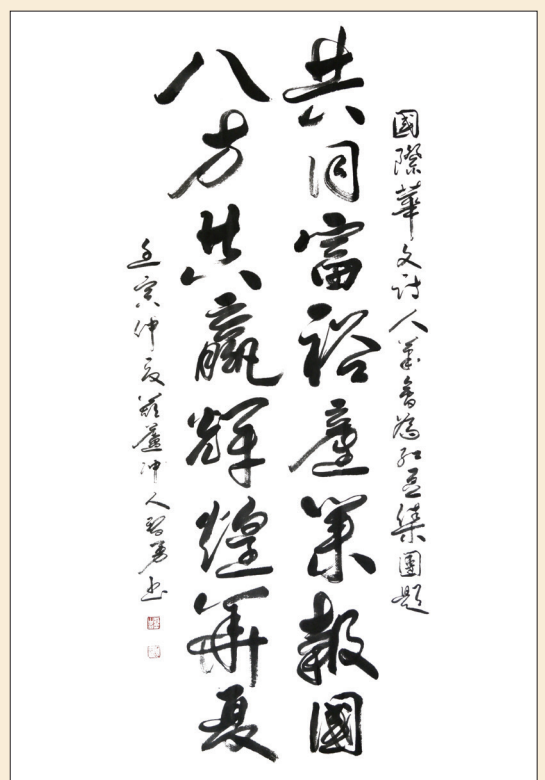 國際華文詩人筆會為紅豆集團題
共同富裕產業報國
八方共贏輝煌華夏
壬寅仲夏蘆沖人智勇書